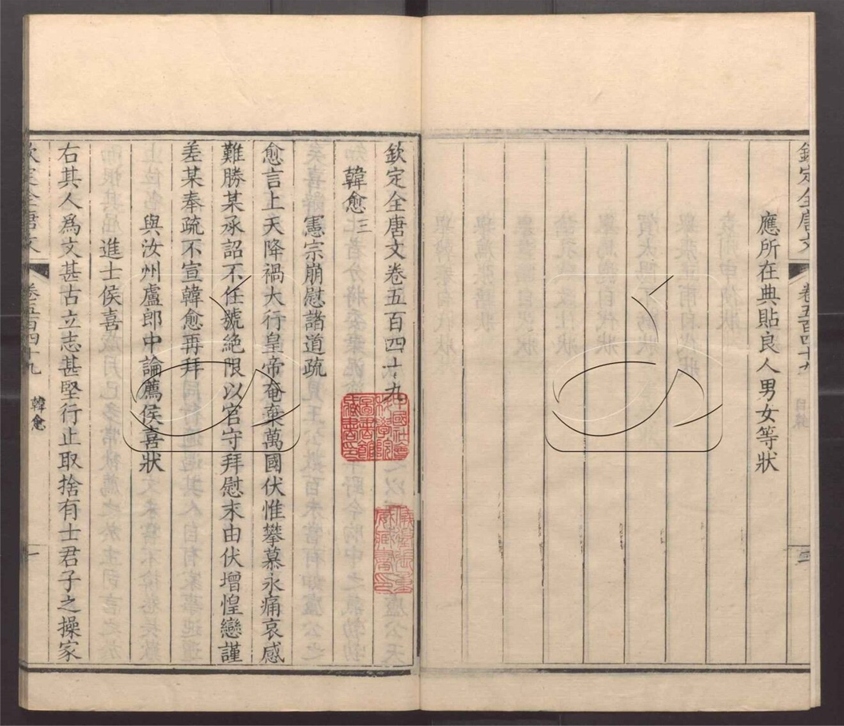 欽定全唐文
卷五百四十九
目錄
二
應所在典貼良人男女等狀
欽定全唐文卷五百四十九
韓愈三
憲宗崩慰諸道疏
愈言上天降禍大行皇帝奄棄萬國伏惟攀慕永痛哀感
難勝某承詔不任號絕限以官守拜慰末由伏增惶戀謹
差某奉疏不宣韓愈再拜
與汝州盧郎中論薦侯喜狀
進士侯喜
右其人為文甚古立志甚堅行止取捨有士君子之操家
欽定全唐文
卷五百四十九
韓愈
一